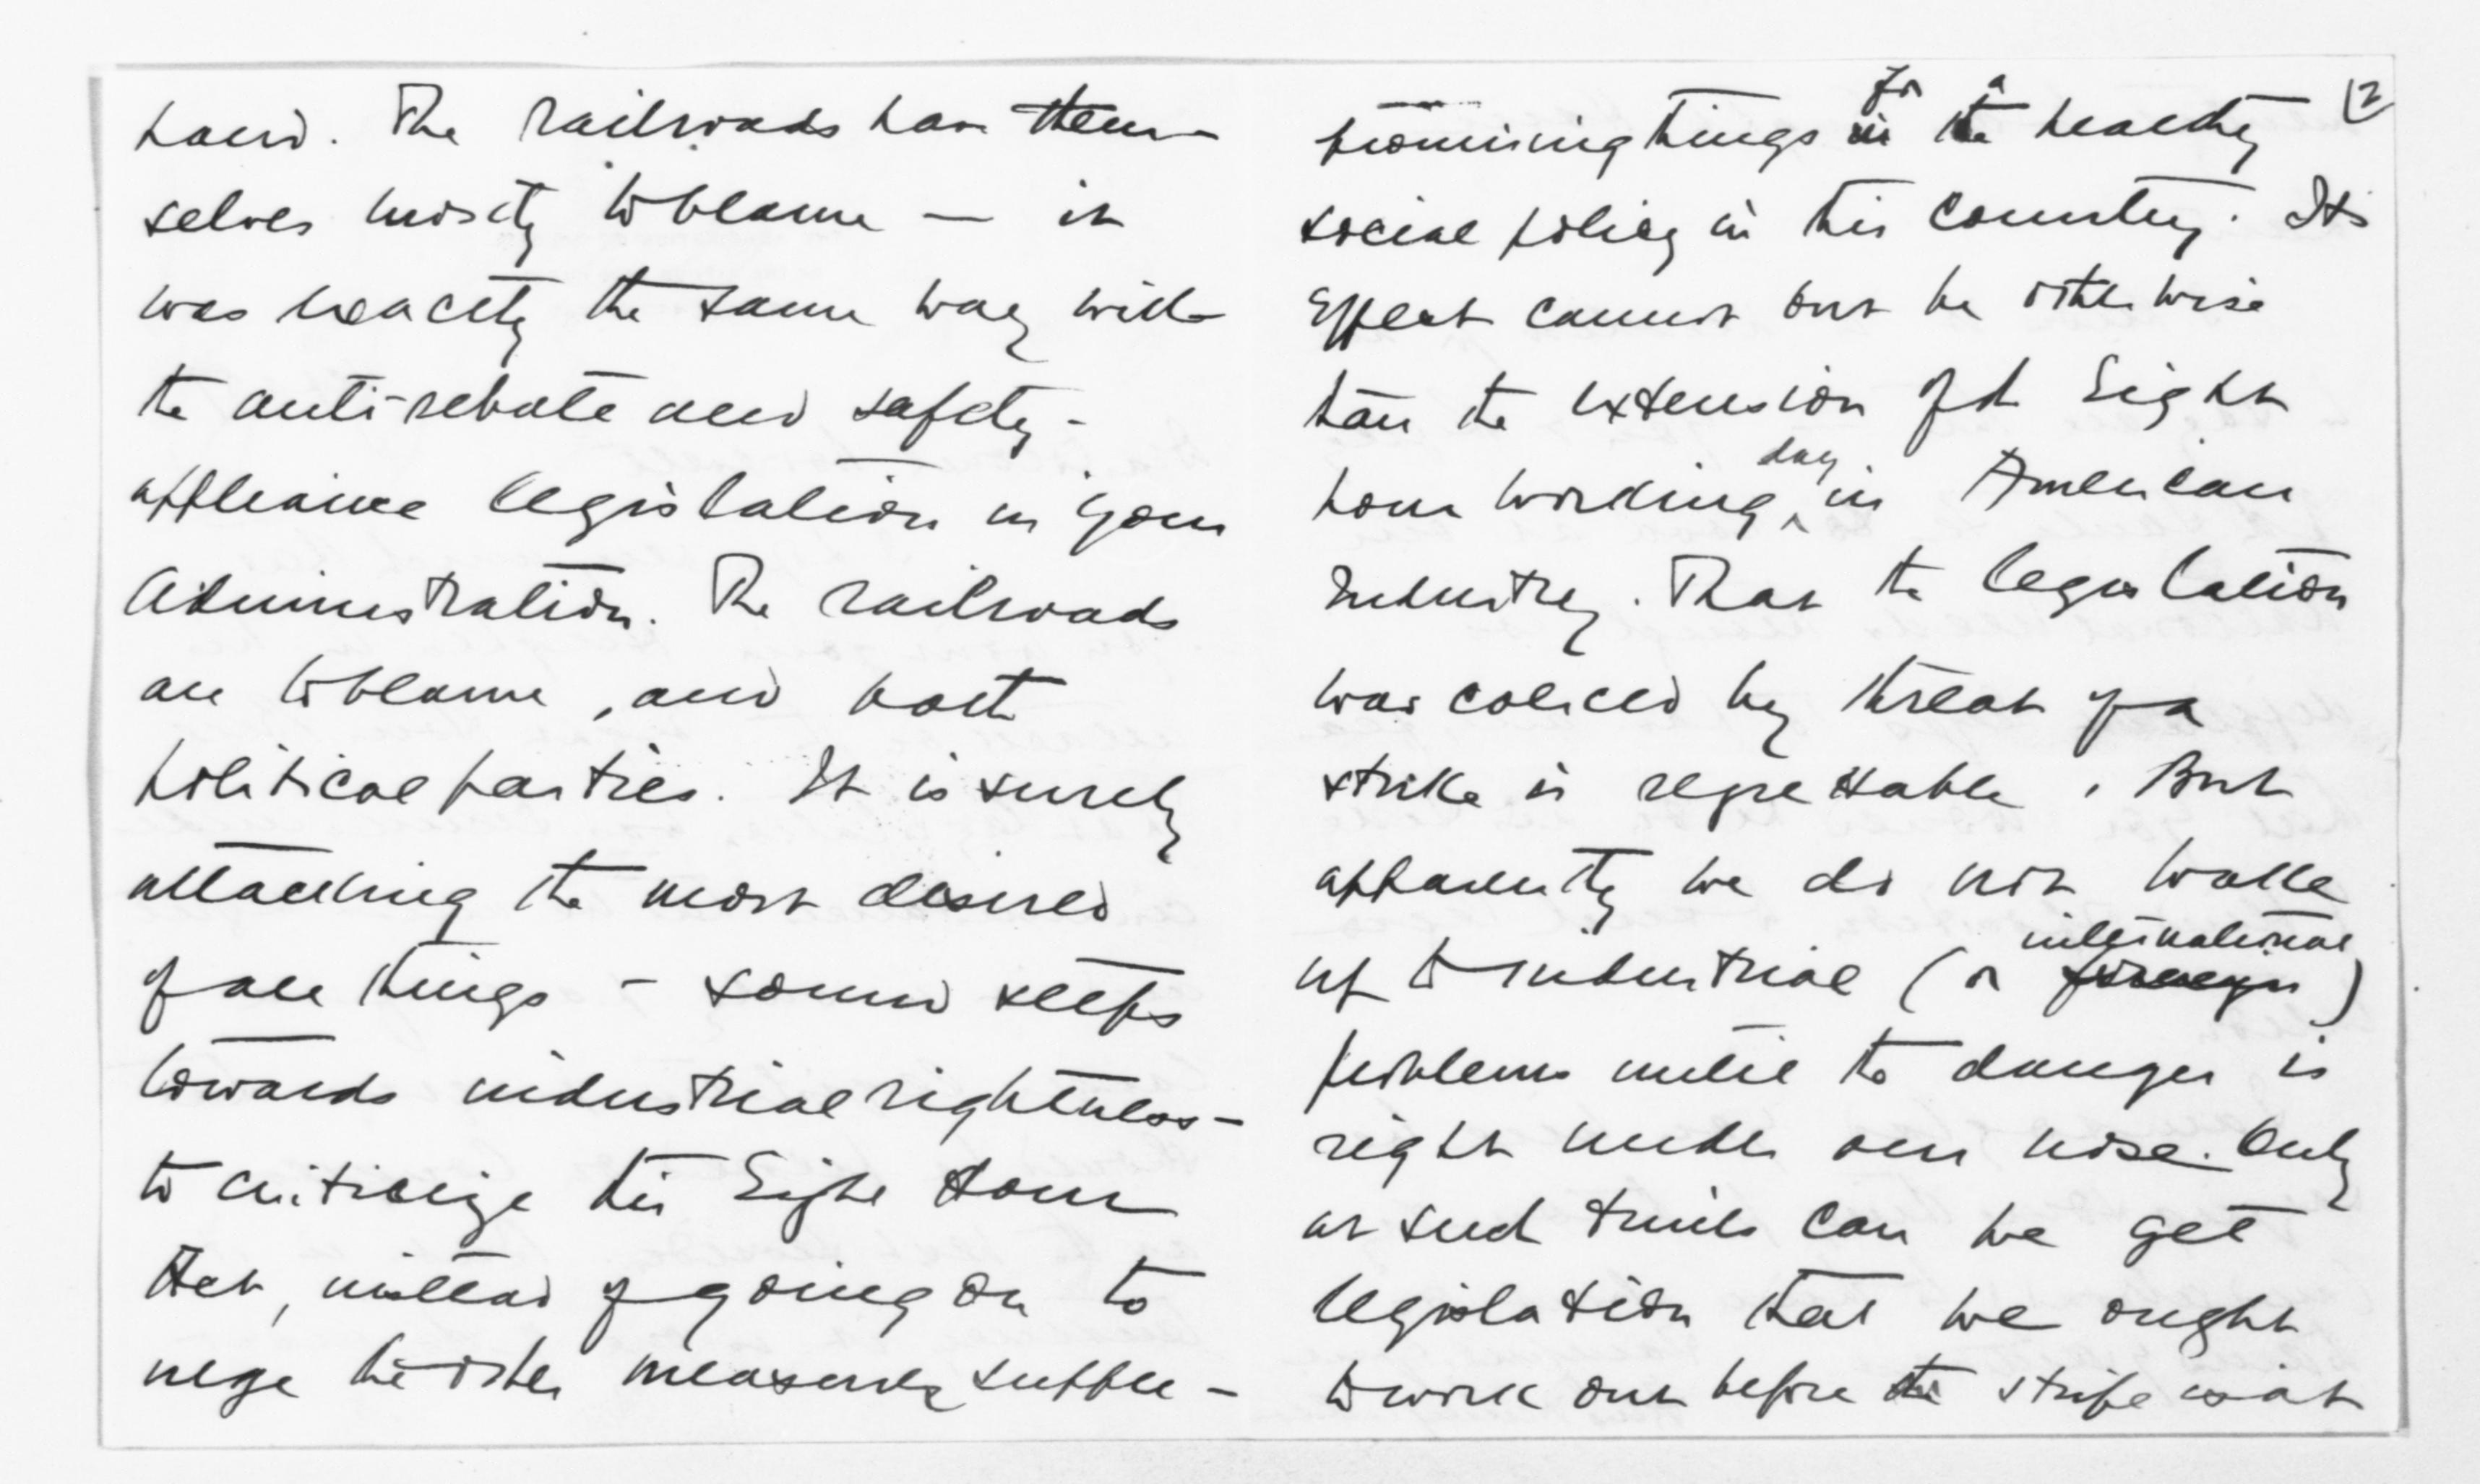 hand. The railroads have them-
selves mostly to blame — it
was exactly the same way with
the anti-rebate and safety-
appliance legislation in your
Administration. The railroads
are to blame, and both
political parties. It is surely
attacking the most desired
of all things - sound steps
towards industrial rightness -
to criticize this Eight Hour
Act, instead of going on to
urge the other measures supple-
12
promising things for a healthy
social policy in this country. Its
effect cannot but be otherwise
than the extension of the Eight
hour working day in American
Industry. That the legislation
was coerced by threat of a
strike is regrettable. But
apparently we do not wake
up to industrial (or international)
problems until the danger is
right under our nose. Only
at such times can we get
legislation that we ought
to work out before the strife is at